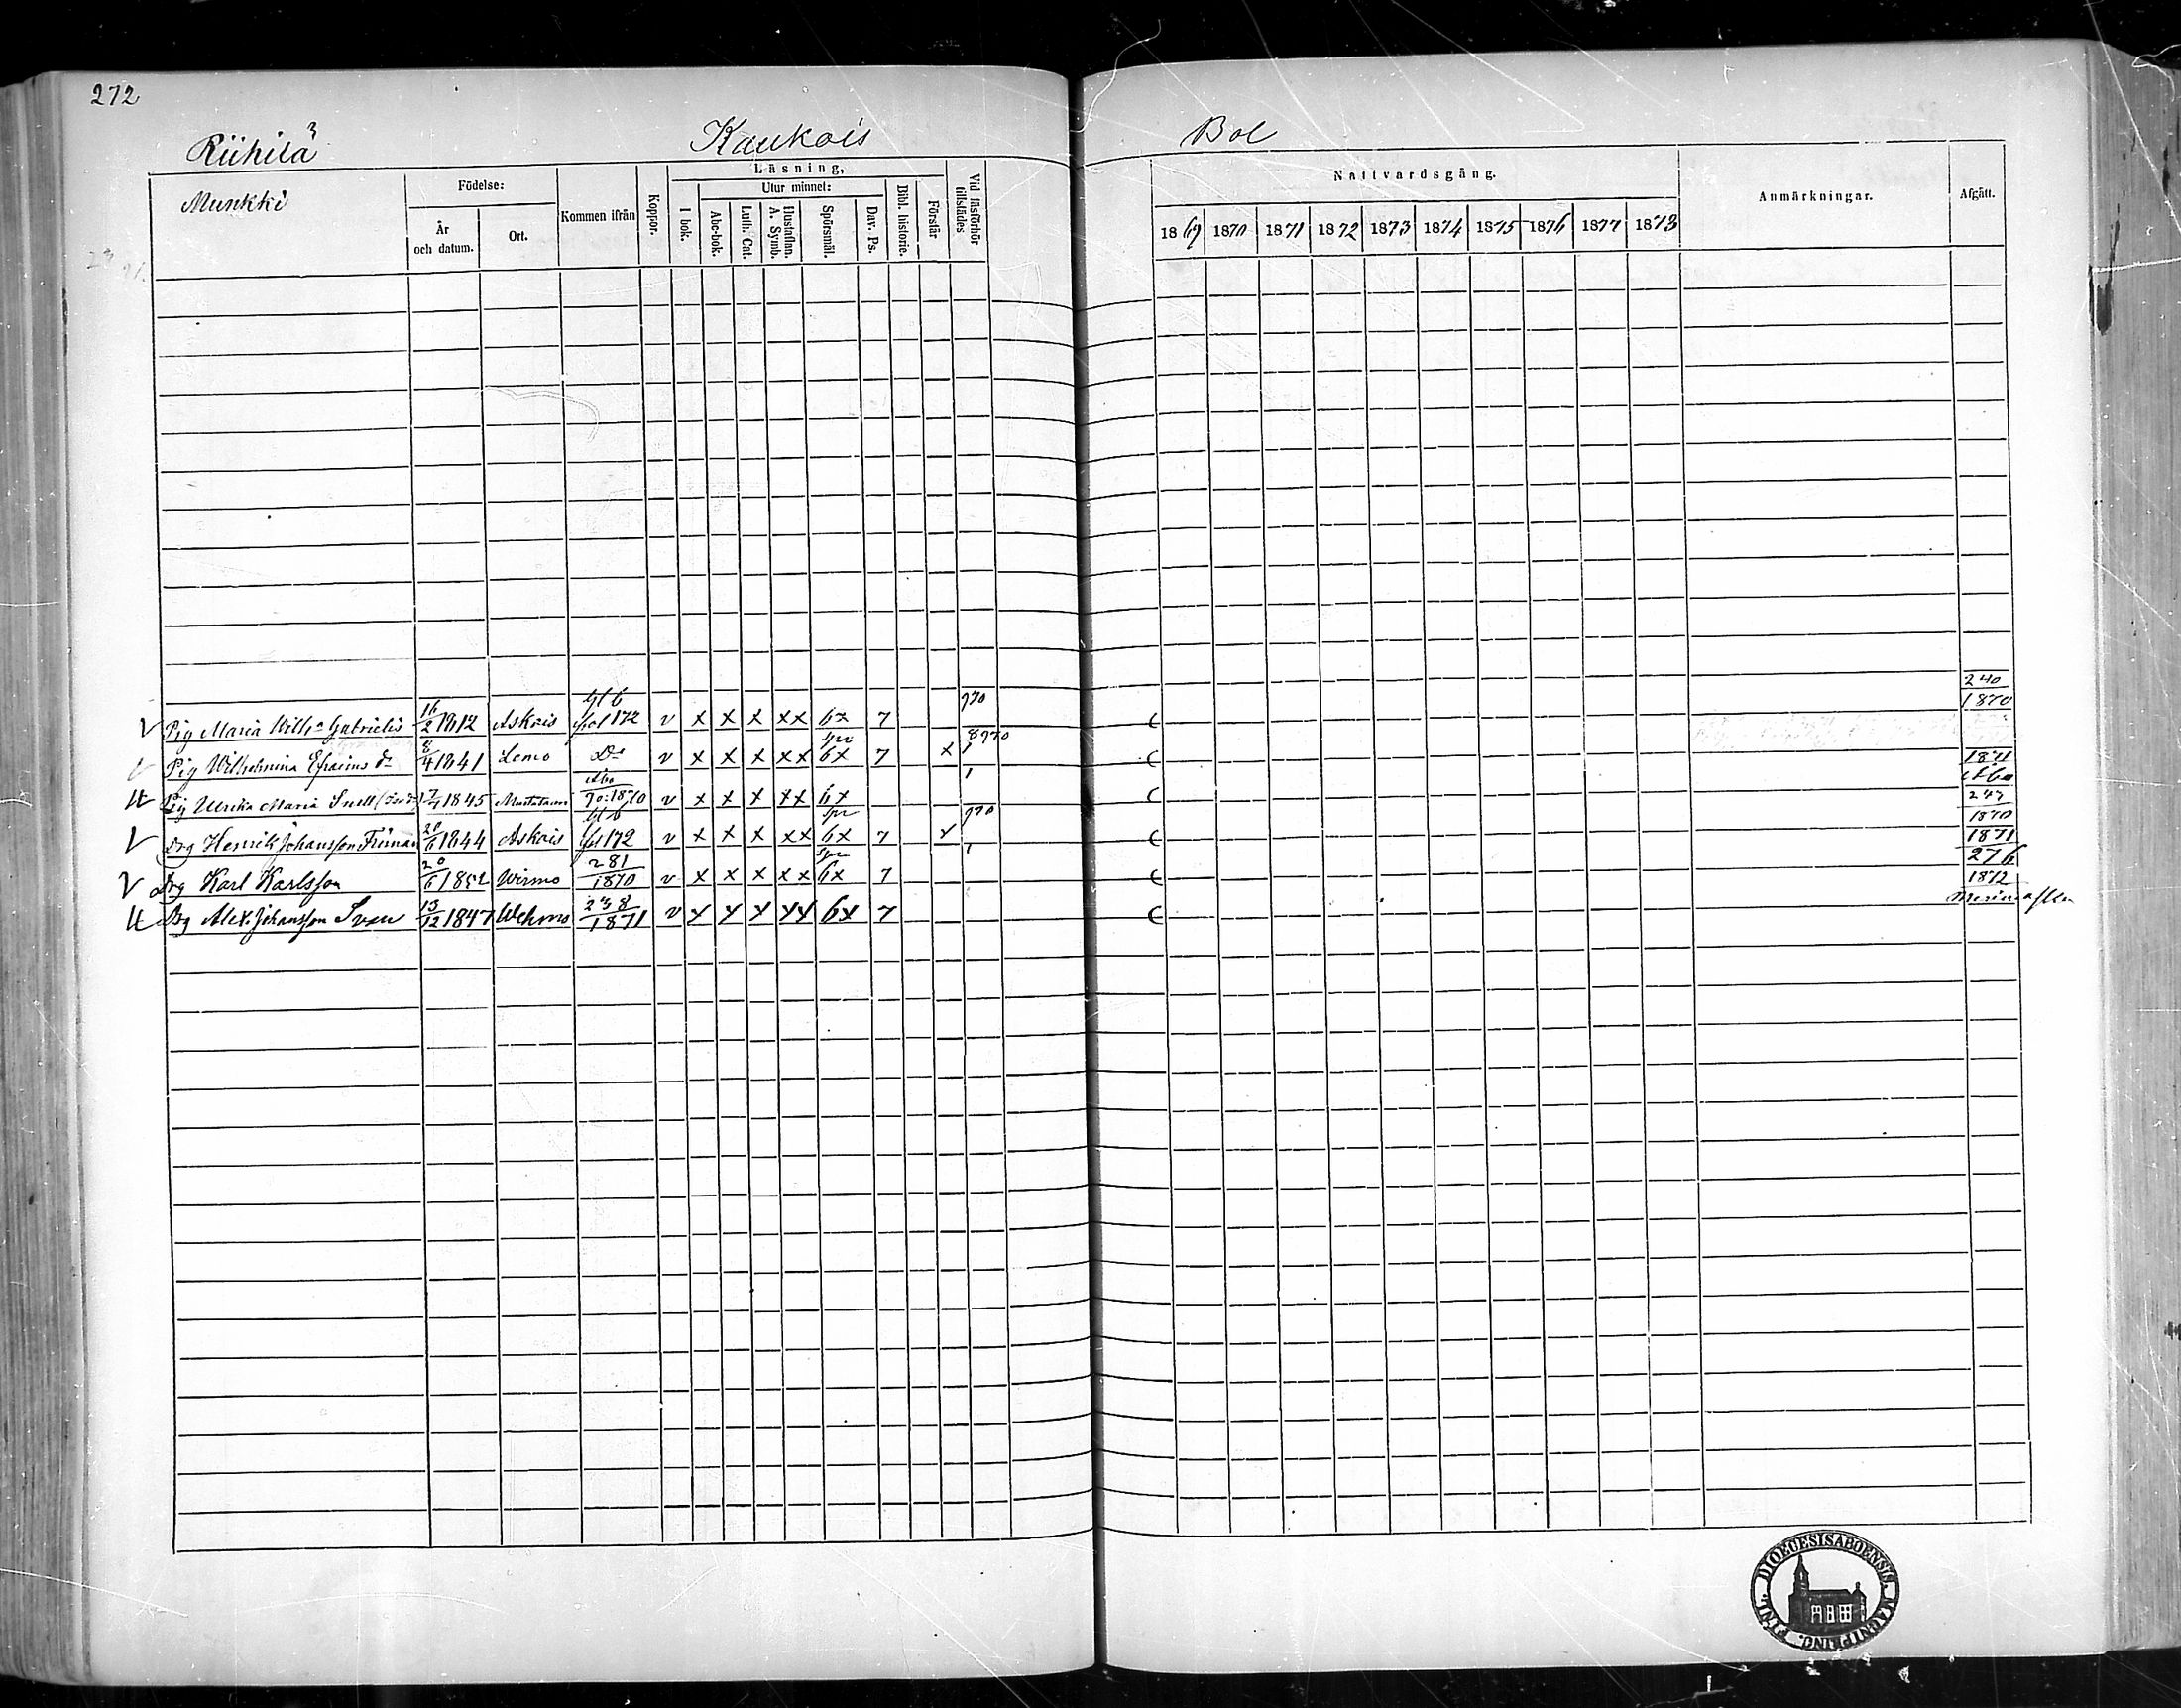 272
Riihilä 3 Kaukois Bol
Munkki
Födelse:
År och datum.
Ort.
Kommen ifrån
Koppor.
Läsning,
I bok.
Utur minnet:
Abc-bok.
Luth. Cat.
Hustaflan. A. Symb.
Spörsmål.
Dav. Ps.
Bibl. historie.
Förstår
Vid läsförhör tillstädes
Nattvardsgång.
1869 1870 1871 1872 1873 1874 1875 1876 1877 1873
Anmärkningar.
Afgått.
V Pig Maria Wilh:a Gabrielis 16/2 1812 Askais fol 172 v x x x xx 6x 7 970 240/1870
Pig Wilhelmina Efraims dr 8/4 1841 Lemo Do v x x x xx 6x 7 x 1 1871
Pig Ulrika Maria Snell 1845 Åbo 90:1870 v x x x xx 6x 1 Åbo
V Drg Henrik Johansson Friman 20/6 1844 Askais fol 172 v x x x xx 6x 7 x 970 1870 1871
V Drg Karl Karlsson 20/6 1852 Wirmo 281/1870 v x x x xx 6x 7 1 276/1872
Drg Alex. Johansson Sven 13/12 1847 Wehmo 238/1871 v x x x xx 6x 7
FINL. DIOECESIS ABOENSIS. MAGNI PRINC.